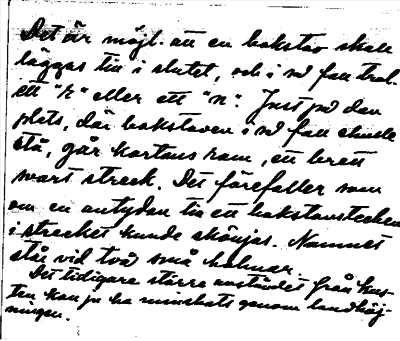 Det är möjl. att en bokstav skall
läggas till i slutet, och i så fall trol.
ett "k" eller ett "n". Just på den
plats, där bokstaven i så fall skulle
stå, går kartans ram, ett brett
svart streck. Det förefaller som
om en antydan till ett bokstavstecken
i strecket kunde skönjas. Namnet
står vid två små holmar.
Det tidigare större avståndet från kus-
ten kan ju ha minskats genom landhöj-
ningen.